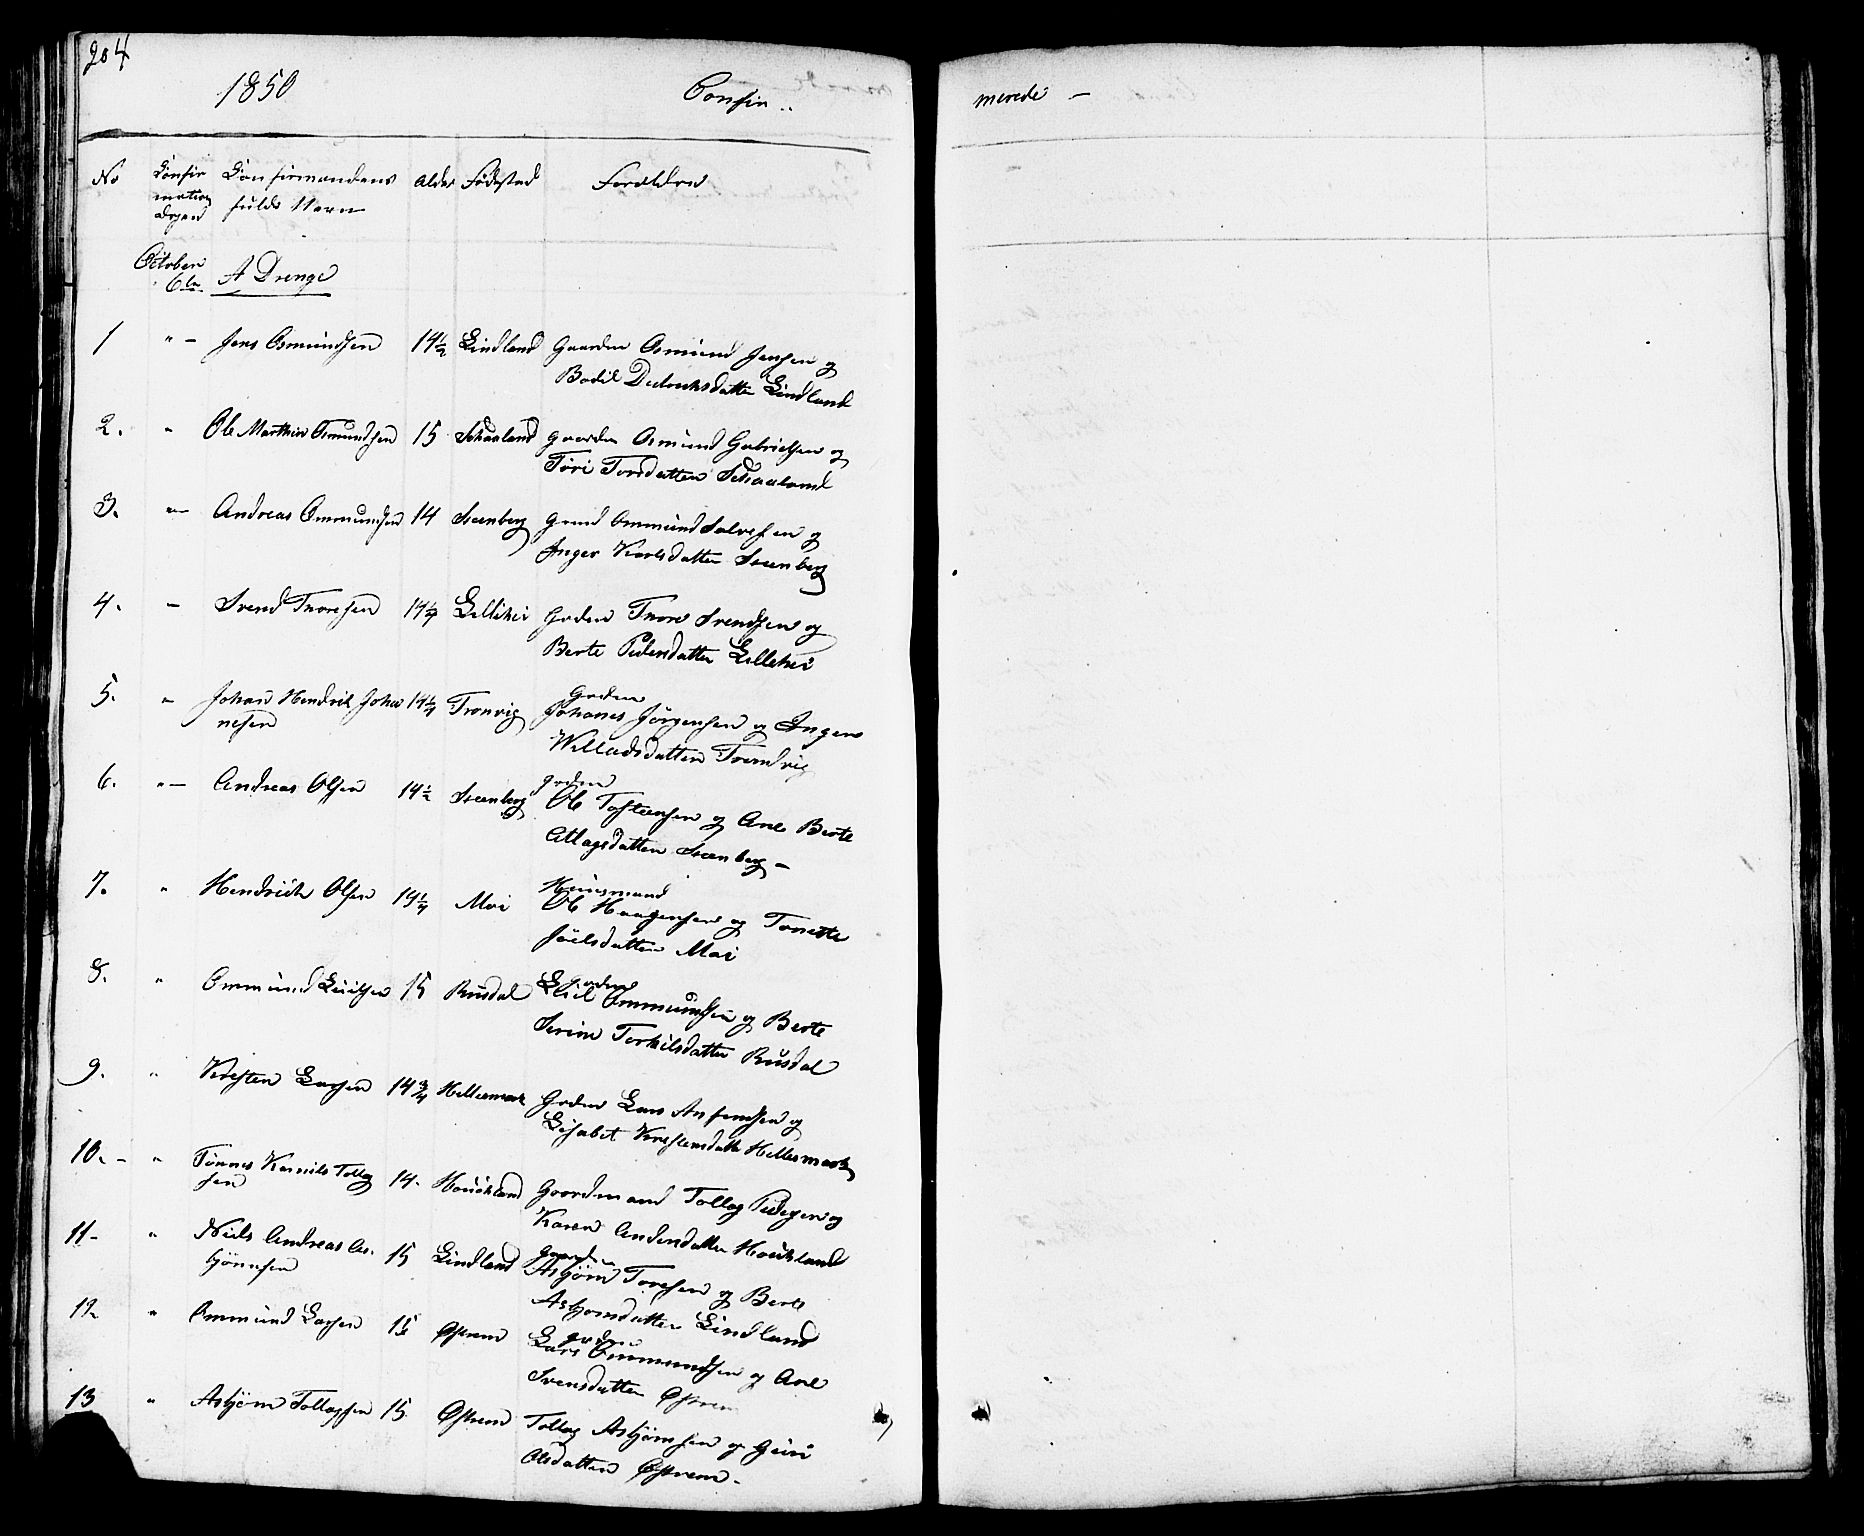 204
1850 Confir..
merede –
No Confir Confirmandens Alder Fødested Forældre
mations fulde Navn
dagen
October
6te A Drenge
1 " – Jens Osmundsen 14½ Lindland Gaardm Osmund Jensen og
Bodil Dideriksdatter Lindland
2. " Ole Marthin Osmundsen 15 Schaaland gaardm Osmund Gabrielsen og
Tøri Torsdatter Schaaland
3. " – Andreas Ommundsen 14 Steenberg Ommund Salvesen og
Inger Karlsdatter Steenberg
4. – Svend Thoresen 14¼ Lillehei Grdm Thore Svendsen og
Berte Pedersdatter Lillehei
5. " Johan Hendrik Joha 14¼ Tronvig Grdm
nesen Johanes Jörgensen og Inger
Willadsdatter Trondvig
6. " – Andreas Olsen 14½ Steenberg grdm
Ole Tostensen og Ane Berte
Atlagsdatter Steenberg –
7. " Hendrick Olsen 14¼ Moi Huusmand
Ole Haagensen og Tonette
Joelsdatter Moi
8. " Ommund 15 Rusdal grdm
Ommundsen og Berte
Serine Torkilsdatter Rusdal
9. " Kirsten Larsen 14¾ Hellesmark Grdm Lars og
Lisabet Kirstensdatter Hellesmark
10. – " Tønnes Kornils Tollag 14. Houkland Gaardmand Tollag Pedersen og
sen
Karen Andersdatter Houkland
11 – " Niels Andreas As- 15 Lindland gaardm
bjönnsen Asbjørn Toresen og Berte
Asbjornsdatter Lindland
12 " Ommund Larsen 15 Østrem grdm
Lars Ommundsen og Ane
Svensdatter Østrem
13 " Asbjørn Tollagsen 15 Østrem Tollag Asbjørnsen og Guri
Olsdatter Østrem –